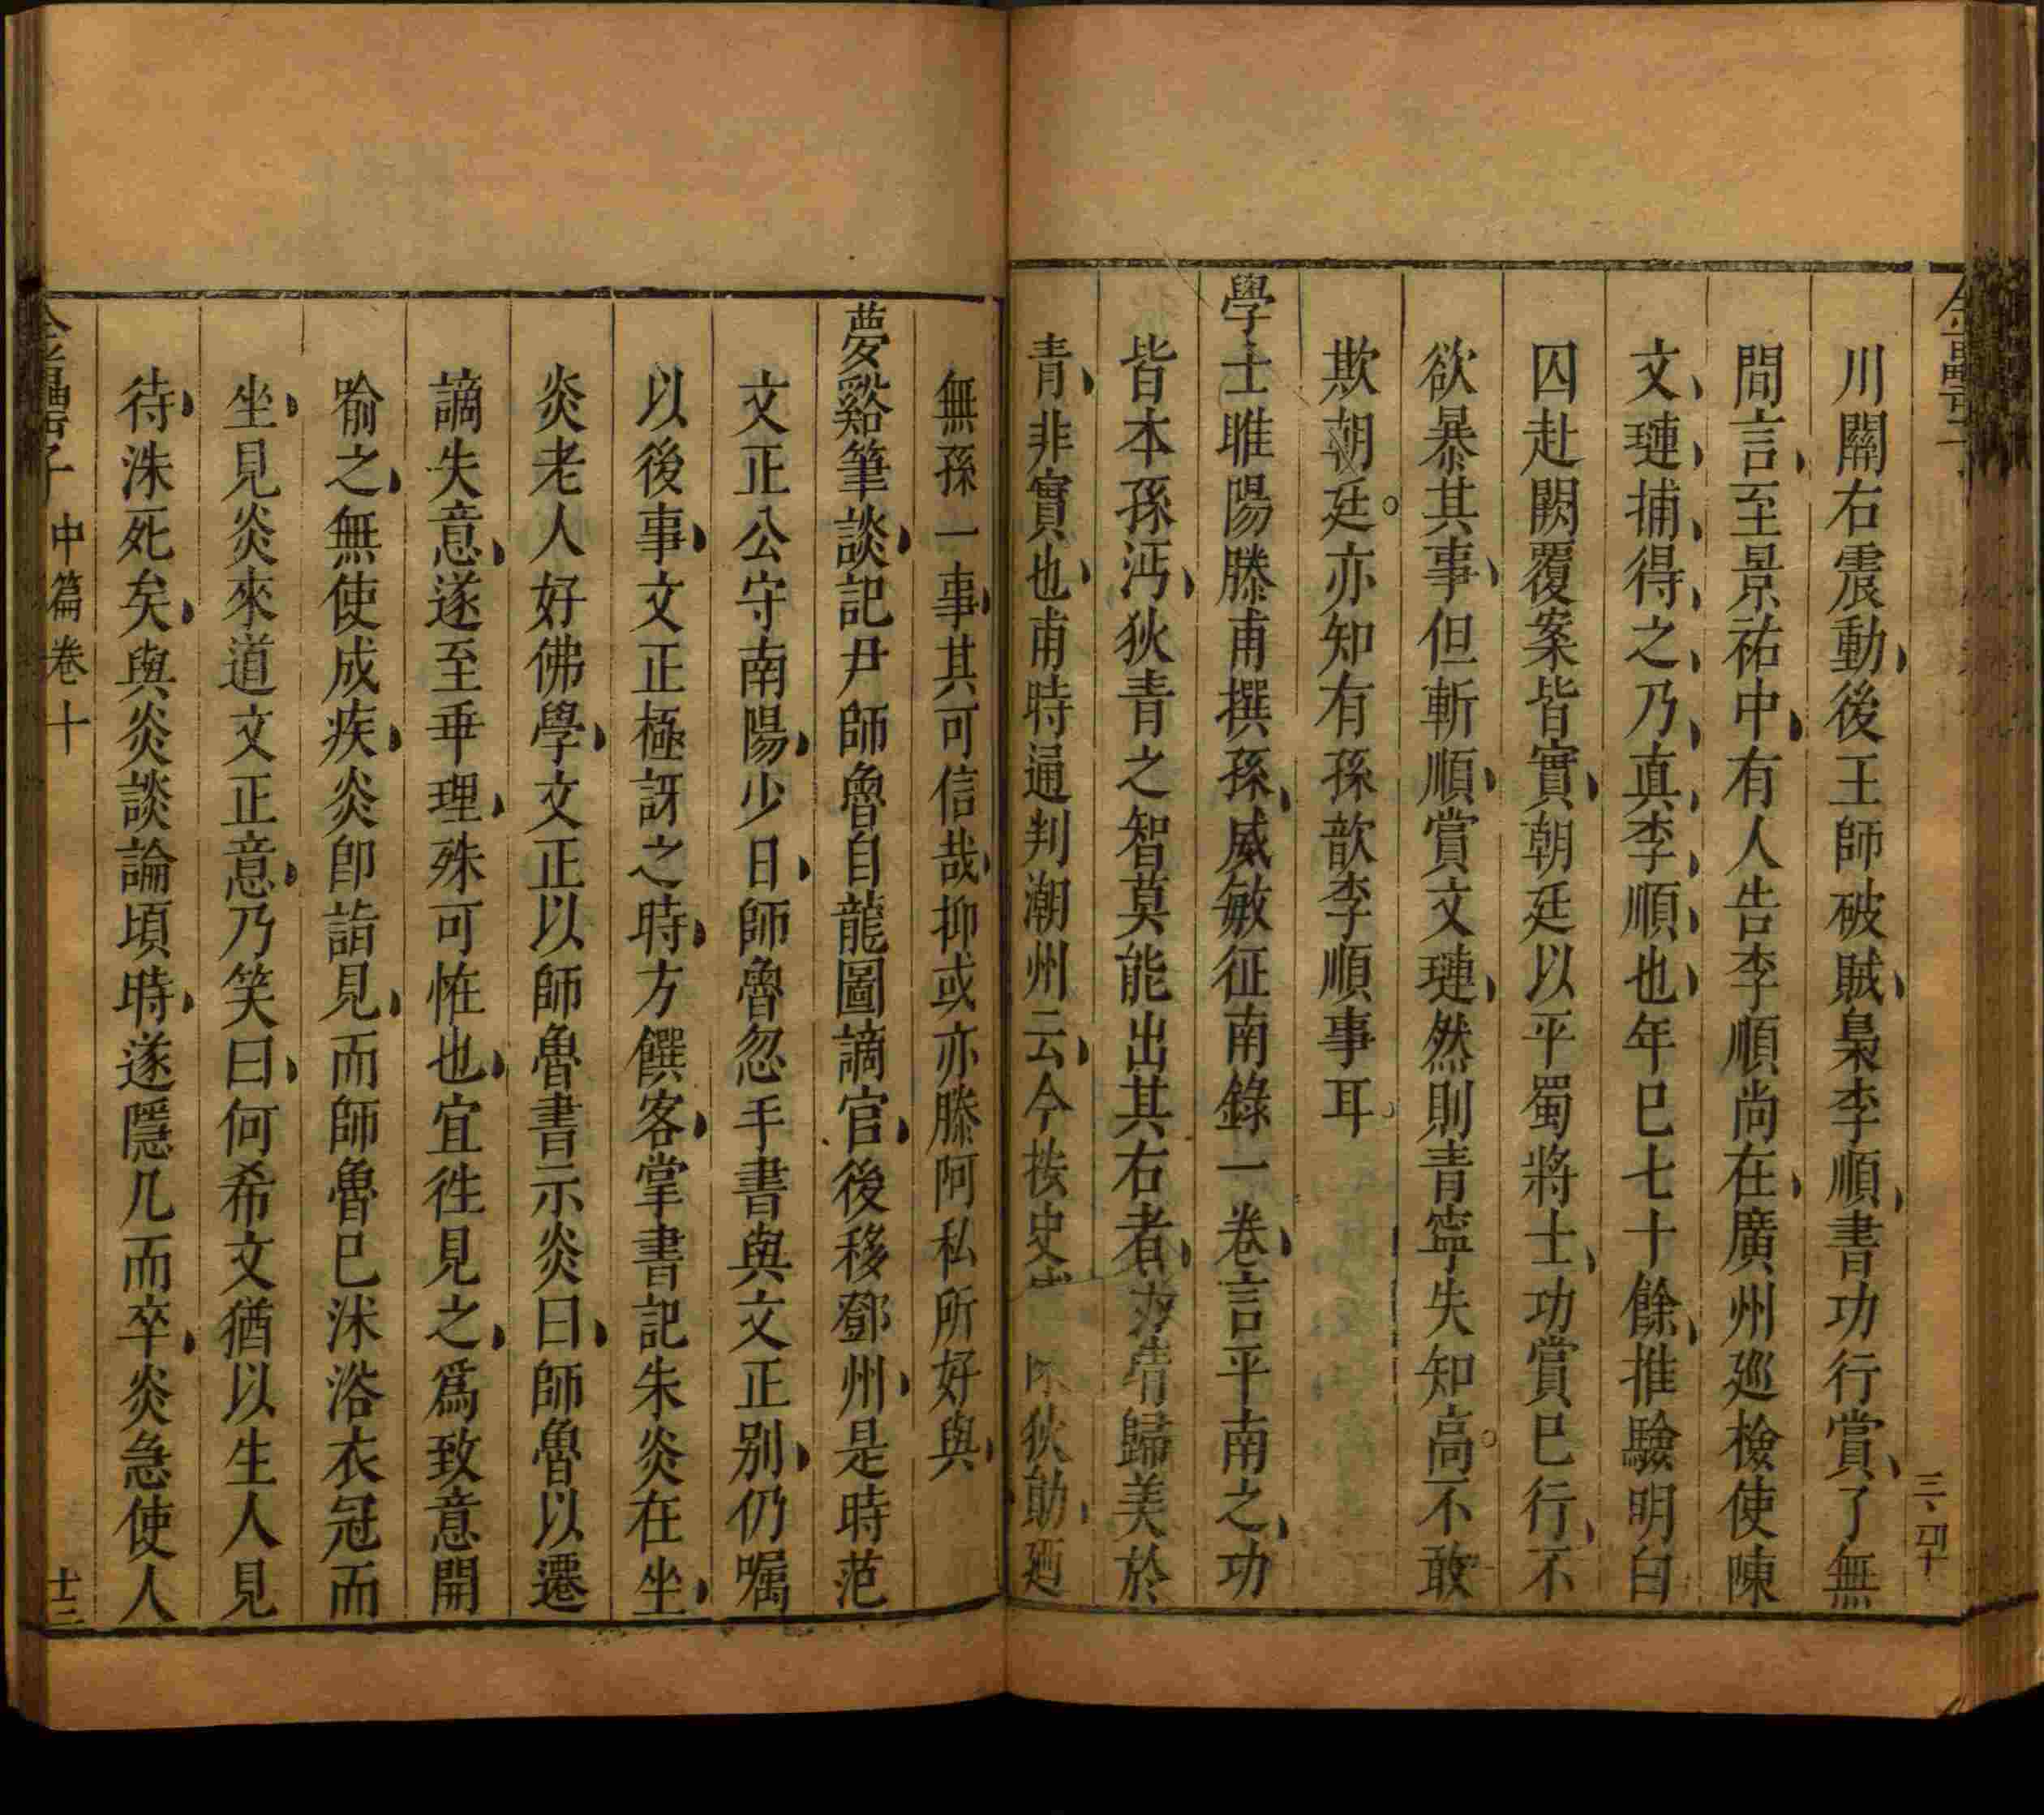 川關右震動後王師破賊梟李順書功行賞了無
間言至景祐中有人告李順尚在廣州廵檢使陳
文璉捕得之乃真李順也年巳七十餘推驗明白
囚赴闕覆案皆實朝廷以平蜀將士功賞巳行不
欲暴其事但斬順賞文璉然則青寧失知高不敢
欺朝廷亦知有孫歆李順事耳
學士睢陽滕甫撰孫威敏征南錄一卷言平南之功
皆本孫沔狄青之智莫能出其右者歸美於
青非實也甫時通判潮州云今按史狄勛廼
無孫一事其可信哉抑或亦滕阿私所好與
夢谿筆談記尹師魯自龍圖謫官後移鄧州是時范
文正公守南陽少日師魯忽手書與文正別仍囑
以後事文正極訝之時方饌客掌書記朱炎在坐
炎老人好佛學文正以師魯書示炎曰師魯以遷
謫失意遂至乖理殊可恠也宜徃見之爲致意開
喻之無使成疾炎卽詣見而師魯巳沐浴衣冠而
坐見炎來道文正意乃笑曰何希文猶以生人見
待洙死矣與炎談論頃時遂隱几而卒炎急使人
中篇卷十
十三